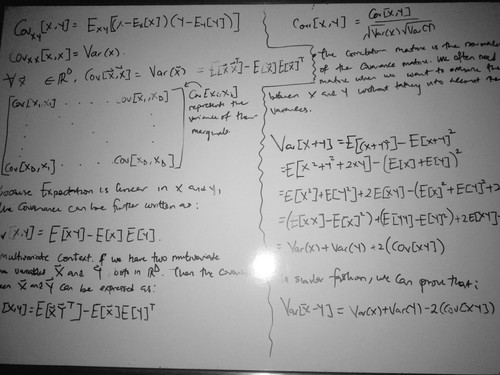 Cov_xy[x,y] = E_xy[(x-E_x[x])(y-E_y[y])]
Cov_xx[x,x] = Var(x).
∀ x⃗ ∈ ℝ^D, Cov[x⃗,x⃗] = Var(x⃗) = E[x⃗x⃗^T] - E[x⃗]E[x⃗]^T
Cov[x₁,x₁] . . . Cov[x₁,x_D]
Cov[x_D,x₁] . . . Cov[x_D,x_D]
Cov[x_i,x_i]
represents the
variance of the
marginals
because Expectation is linear in x and y,
the Covariance can be further written as:
[x,y] = E[xy] - E[x]E[y].
multivariate Context. if we have two multivariate
variables X⃗ and Y⃗, both in ℝ^D. Then the
X⃗ and Y⃗ can be expressed as:
[x,y] = E[x⃗y⃗^T] - E[x⃗]E[y]^T
Corr[x,y] = Cov[x,y] / √Var(x) √Var(y)
The correlation matrix is the
of the Covariance matrix. We often need
matrix when we want to
between X and Y without taking into account the
variances.
Var[x+y] = E[(x+y)²] - E[x+y]²
= E[x²+y²+2xy] - (E[x]+E[y])²
= E[x²]+E[y²]+2E[xy] - (E[x]²+E[y]²+2
= (E[xx]-E[x]²)+(E[yy]-E[y]²)+2E[xy]-
= Var(x)+Var(y)+2(Cov[xy])
fashion, we can prove that:
Var[x-y] = Var(x)+Var(y)-2(Cov[xy])